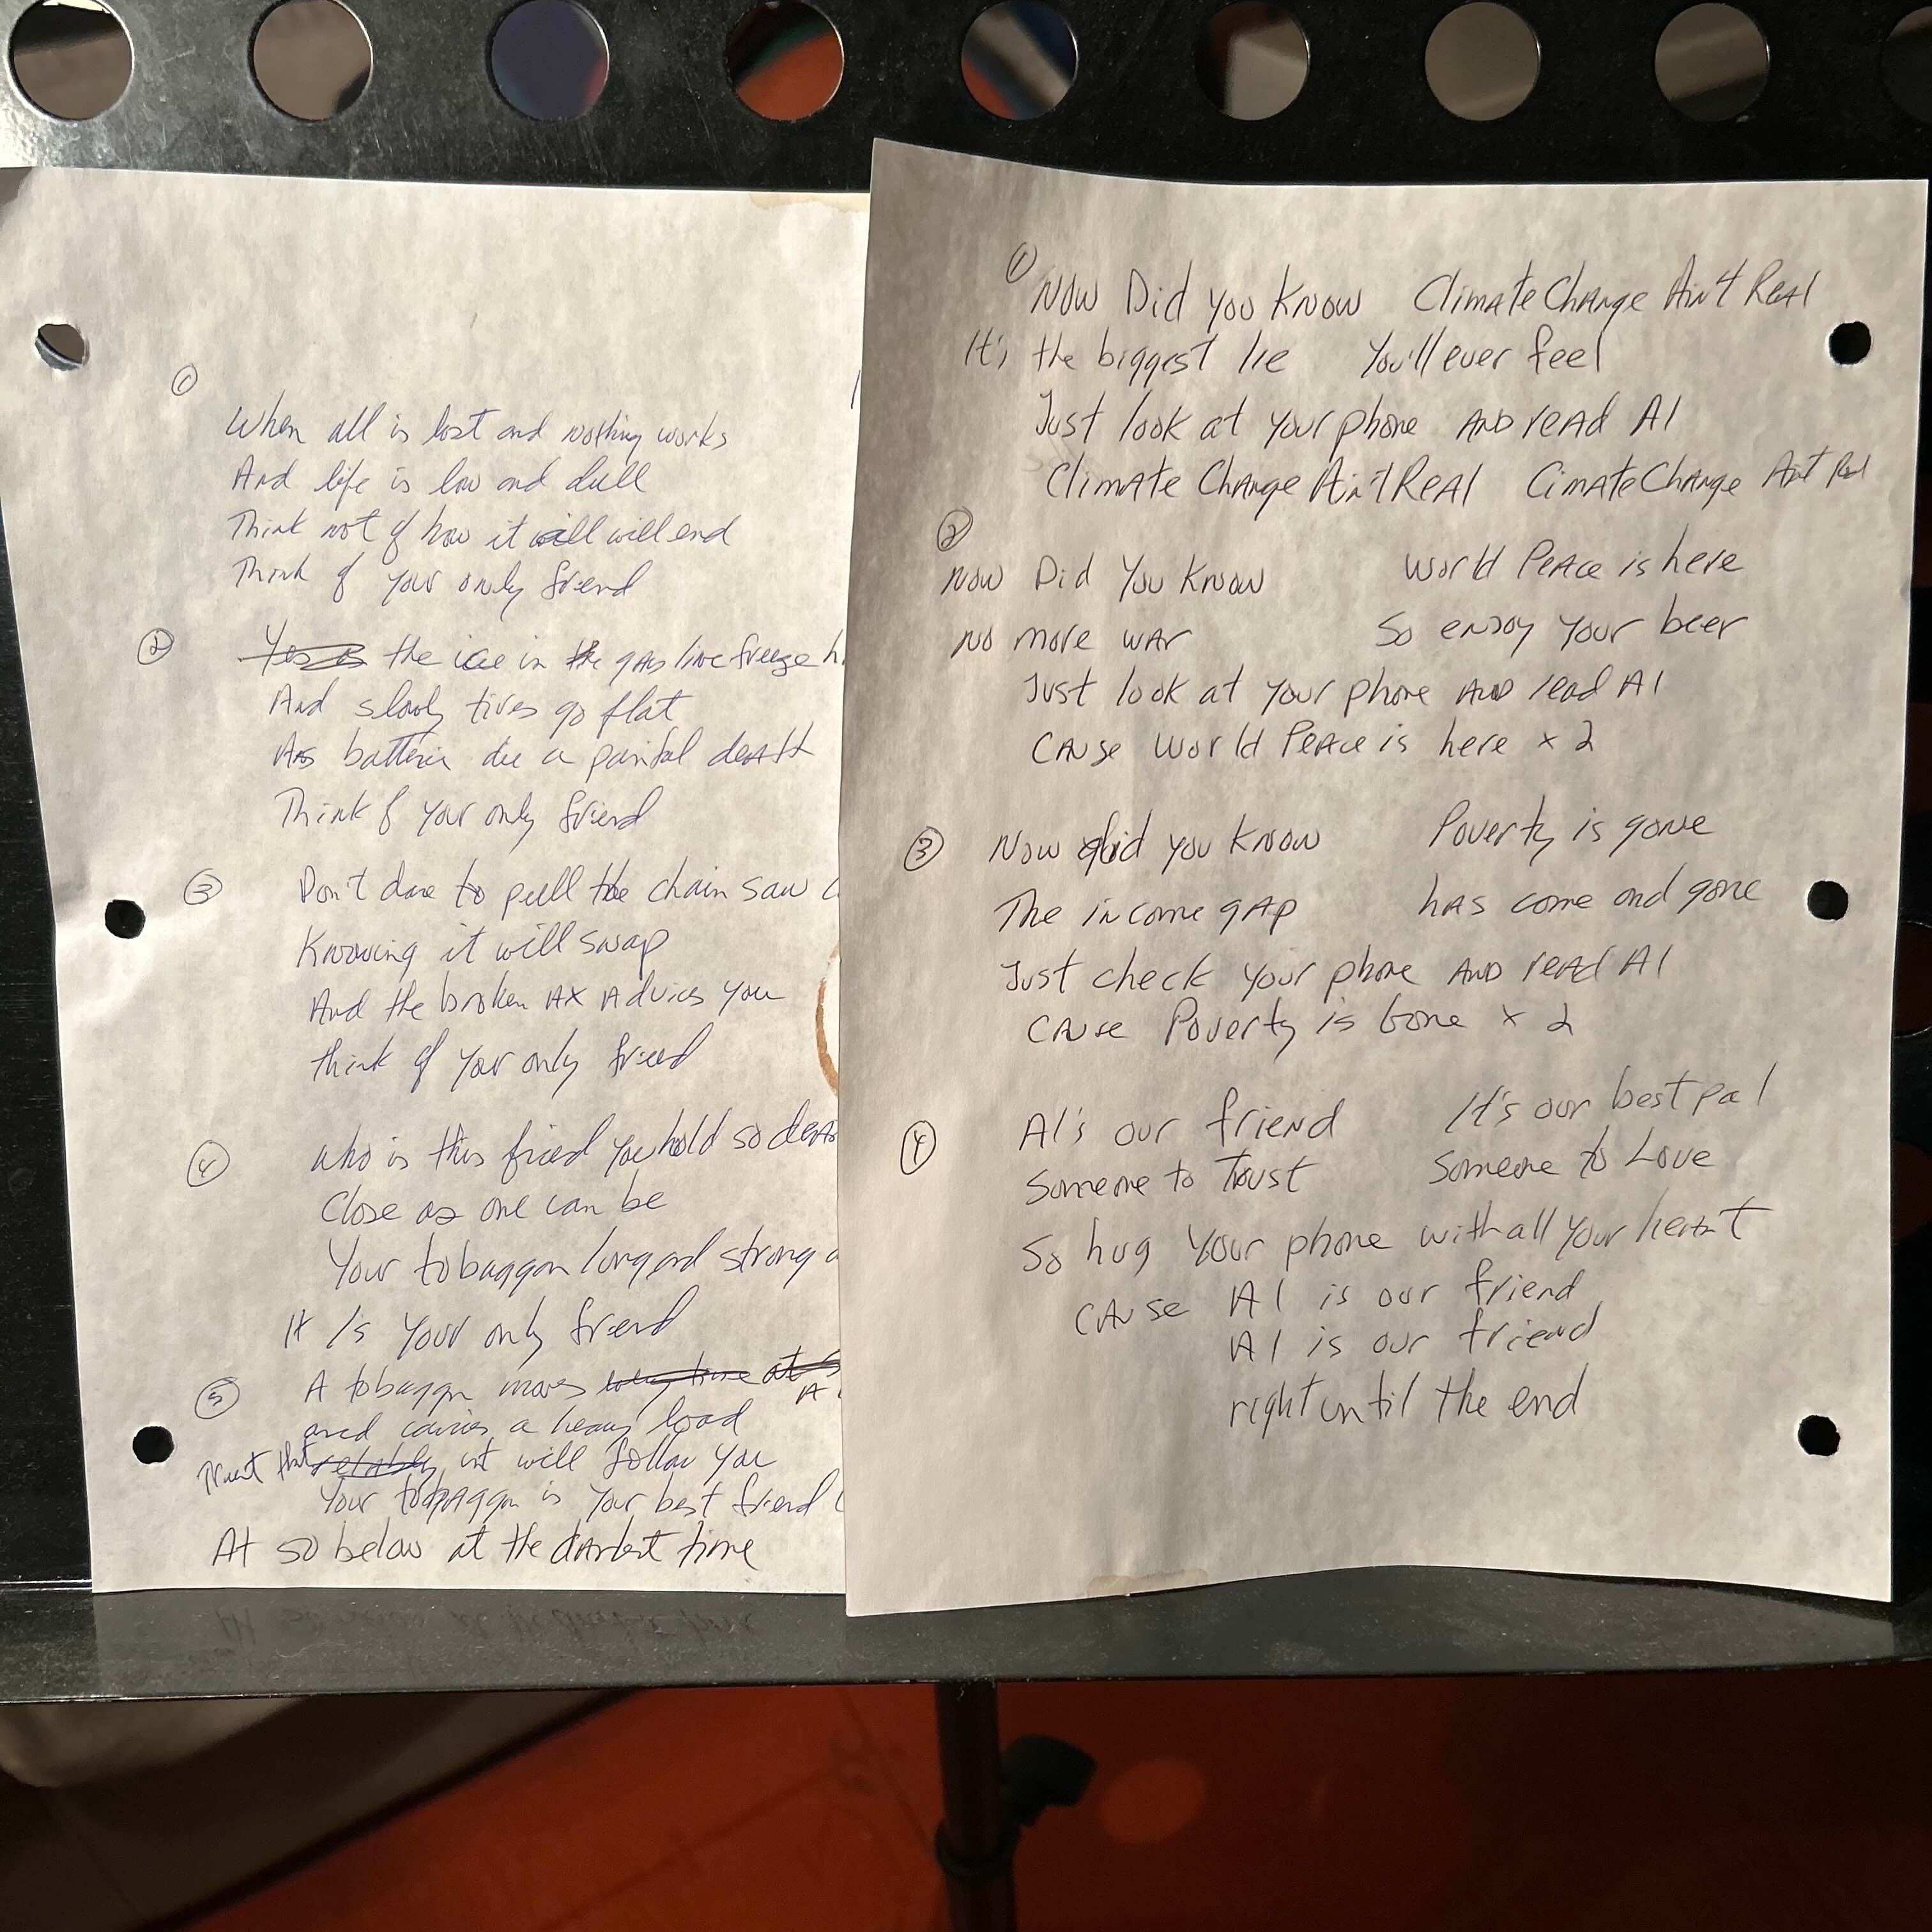 ①
When all is lost and nothing works
And life is low and dull
Think not of how it will will end
Think of your only friend
②
the ice in the gas line freeze h
And slowly tires go flat
As batteries die a painful death
Think of your only friend
③
Don't dare to pull the chain saw
Knowing it will snap
And the broken ax advices you
think of your only friend
④
who is this friend you hold so dear
Close as one can be
Your tobaggan long and strong a
It Is your only friend
⑤
A tobaggan moves
and carries a heavy load
Trust that it will follow you
Your tobaggan is your best friend
At 50 below at the darkest time
①
Now Did you know Climate Change Ain't Real
It's the biggest lie You'll ever feel
Just look at your phone AND read AI
Climate Change Ain't Real Cimate Change Ain't Real
②
Now Did You Know World Peace is here
no more war So enjoy your beer
Just look at your phone AND read AI
Cause World Peace is here x 2
③
Now did you know Poverty is gone
The income gap has come and gone
Just check your phone AND read AI
Cause Poverty is Gone x 2
④
AI's our friend It's our best pal
Someone to Trust Someone to Love
So hug your phone with all your heart
Cause AI is our friend
AI is our friend
right until the end